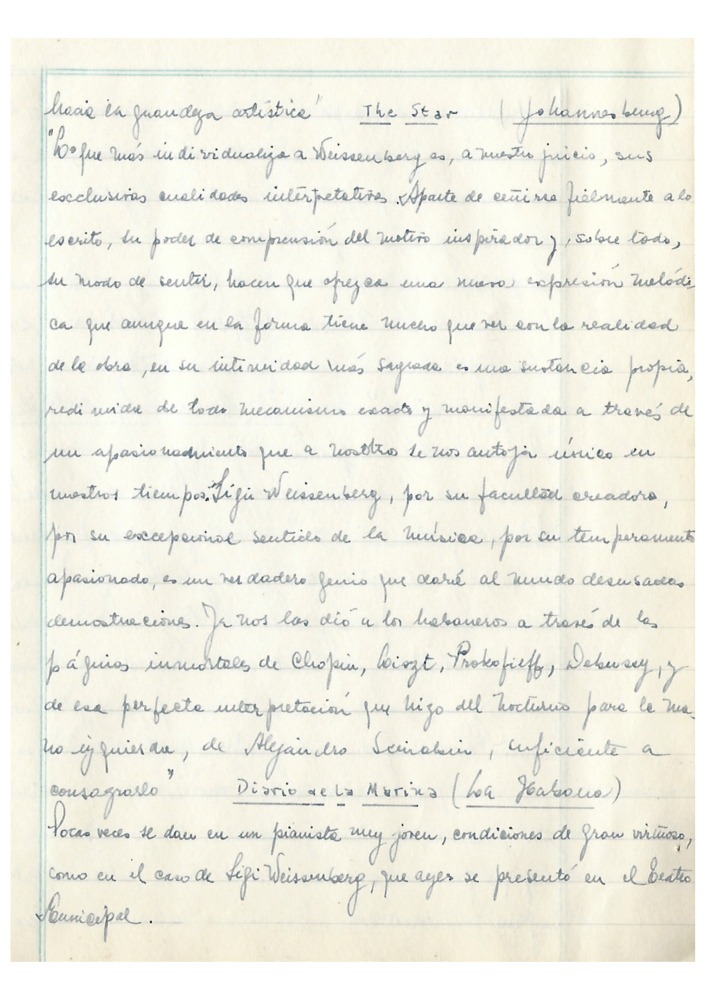 hacia la grandeza artística" The Star (Johannesburg)
"Lo que más individualiza a Weissenberg es, a nuestro juicio, sus
exclusivas cualidades interpretativas. Aparte de ceñirse fielmente a lo
escrito, su poder de comprensión del motivo inspirador y, sobre todo,
su modo de sentir, hacen que ofrezca una nueva expresión melódi-
ca que aunque en la forma tiene mucho que ver con la realidad
de la obra, en su intimidad más sagrada es una sustancia propia,
redimida de todo mecanismo exacto y manifestada a través de
un apasionamiento que a nosotros se nos antoja único en
nuestros tiempos. Sigi Weissenberg, por su facultad creadora,
por su excepcional sentido de la música, por su temperamento
apasionado, es un verdadero genio que dará al mundo desusadas
demostraciones. Ya nos las dió a los habaneros a través de las
páginas inmortales de Chopin, Liszt, Prokofieff, Debussy, y
de esa perfecta interpretación que hizo del Nocturno para la ma-
no izquierda, de Alejandro Scriabin, suficiente a
consagrarlo" Diario de la Marina (La Habana)
Pocas veces se dan en un pianista muy joven, condiciones de gran virtuoso,
como en el caso de Sigi Weissenberg, que ayer se presentó en el Teatro
Municipal.